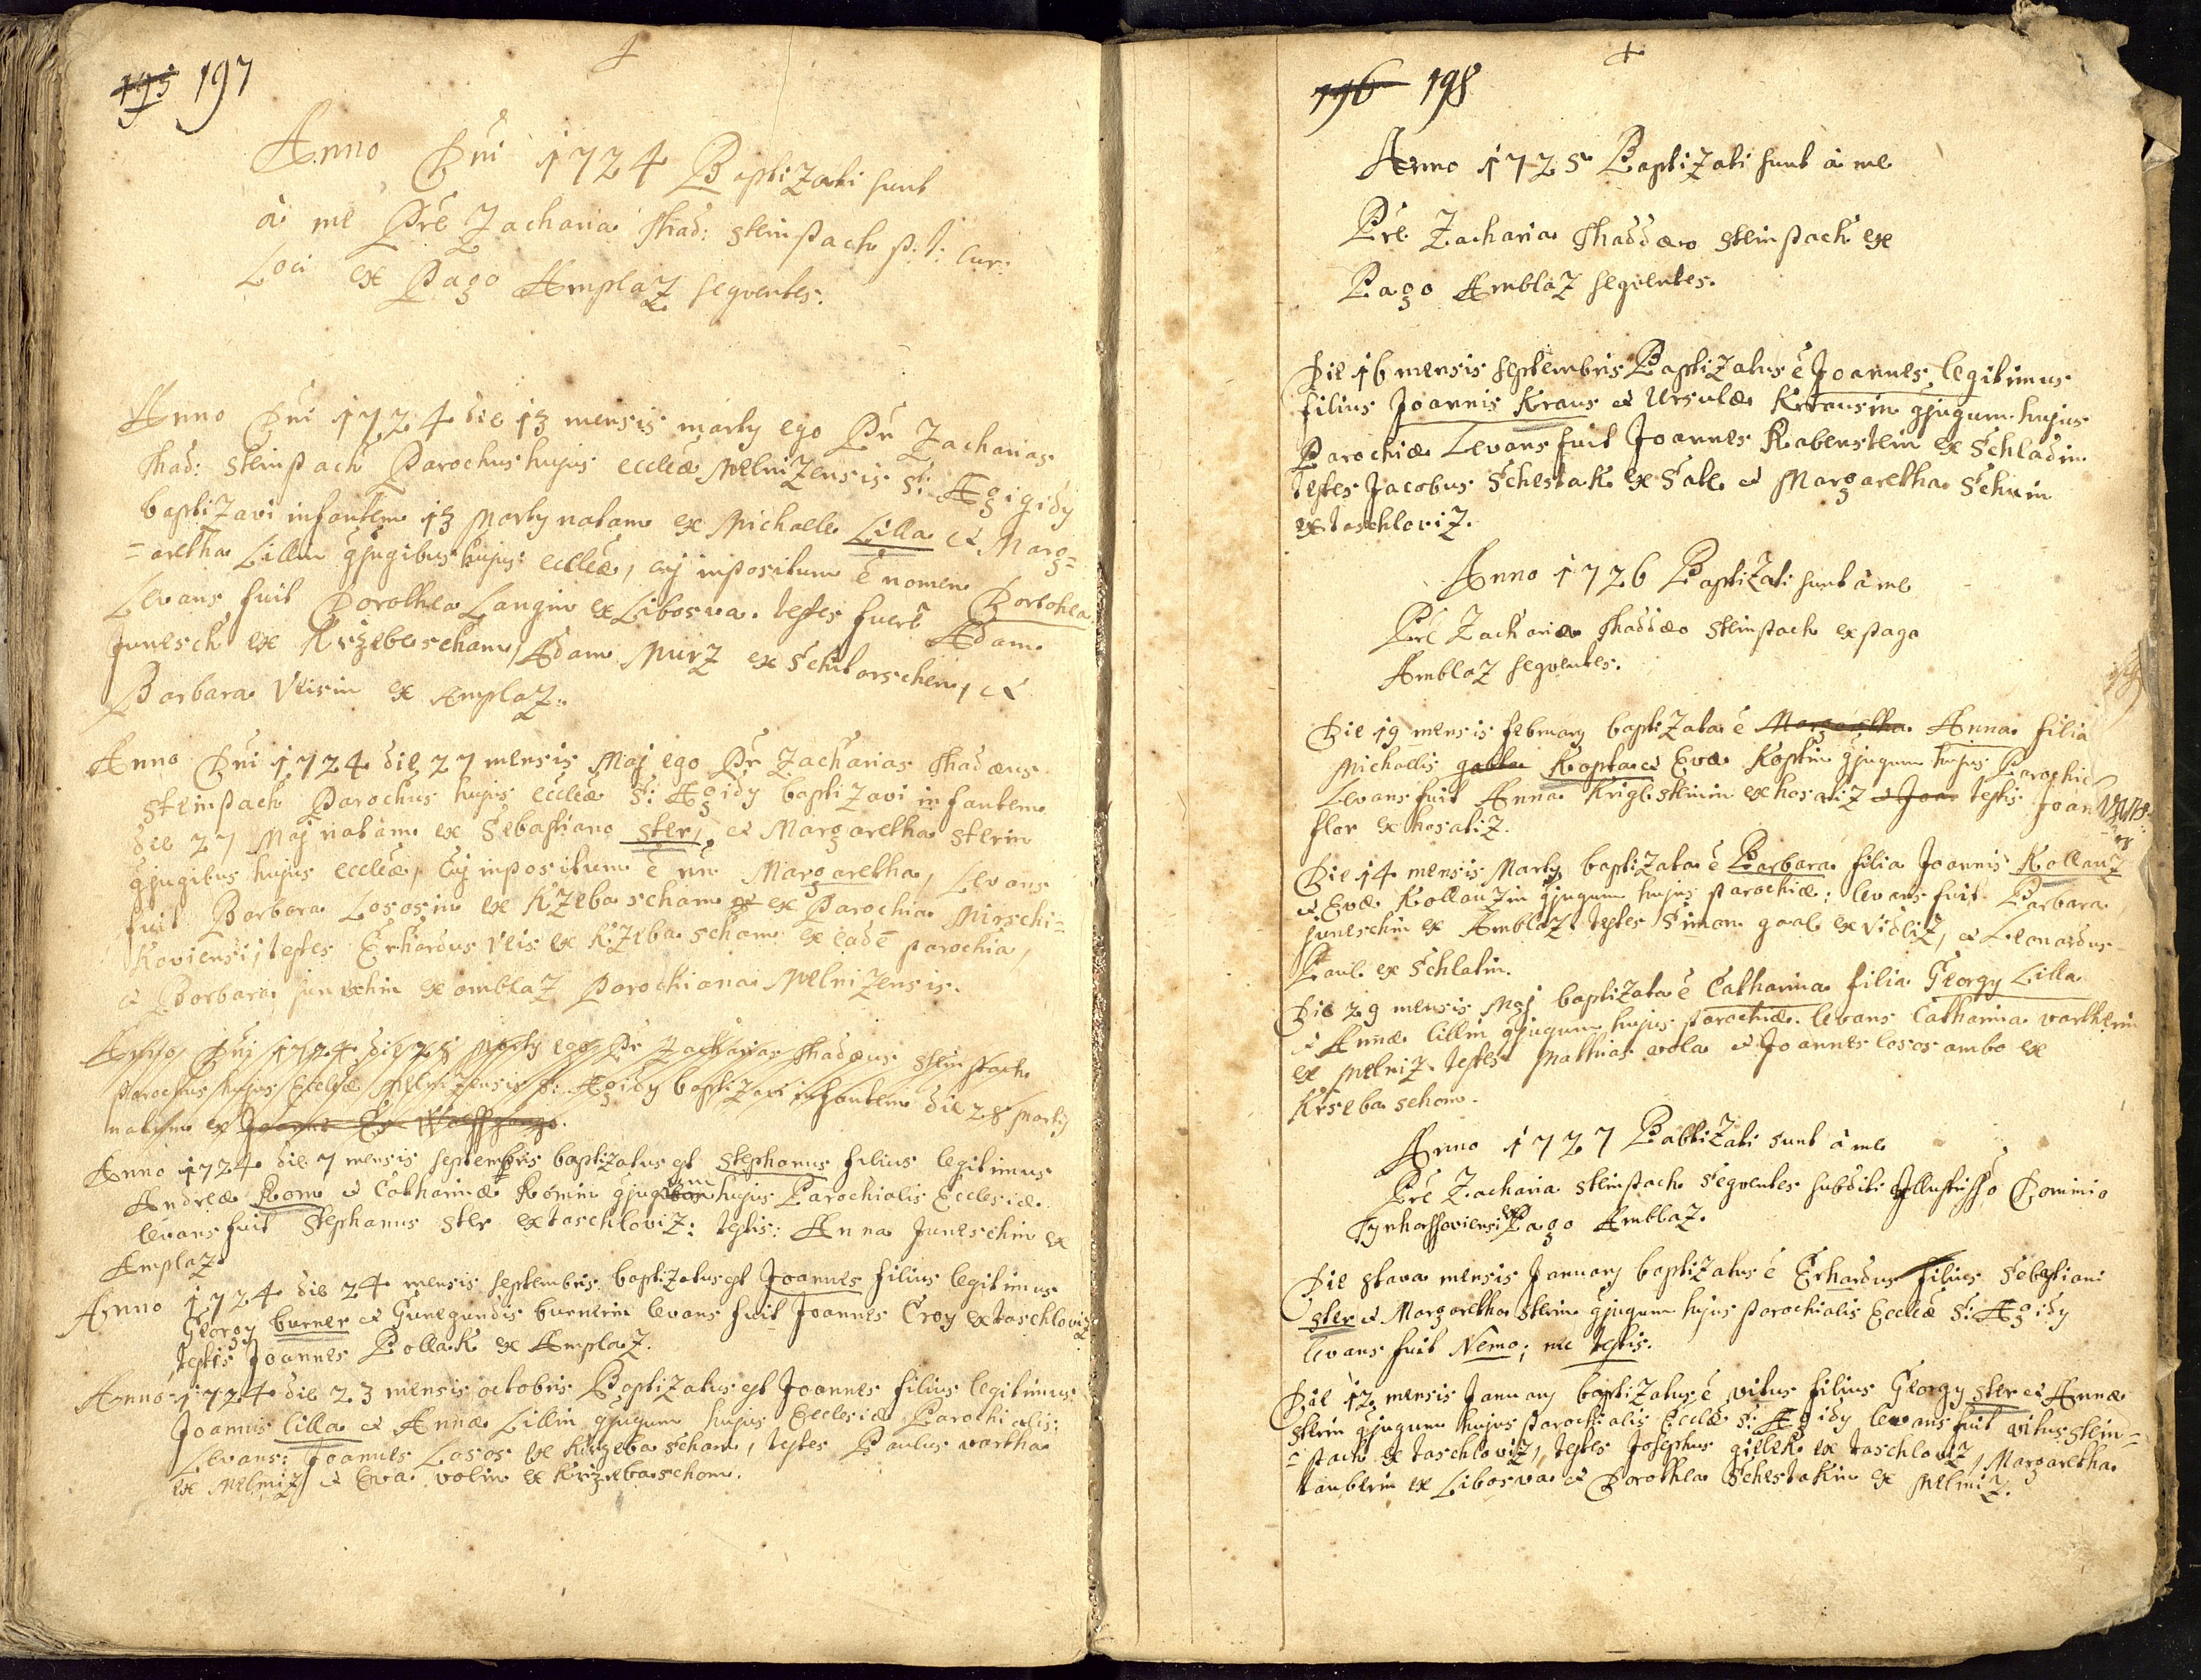 195 197
Anno Dni 1724 Baptizati sunt
à me Pre Zacharia Thad: Steinpach p: t: Cur:
Loci ex Pago Amplaz sequentes.
Anno Dni 1724 die 13 mensis marty ego Pr Zacharias
Thad: Steinpach Parochus hujus eccleæ Melnizensis S: Ægigidy
baptizavi infantem 13 Marty natam ex Michaele Lilla et Marg=
=aretha Lillin gjugibus hujus: eccleæ, cuj impositum ē nomen Dortohea
Levans fuit Dorothea Langin ex Libosva. testes fuerē Adam
Junesch ex Krzebescham, Adam Mirz ex Schitarschen, et
Barbara Veisin ex Amplaz.
Anno Dni 1724 die 27 mensis Maj ego Pr Zacharias Thadæus
Steinpach Parochus hujus eccleæ S: Ægidy baptizavi infantem
die 27 Maj natam ex Sebastiano Ster, et Margaretha Sterin
gjugibus hujus eccleæ, cuj impositum ē nm Margaretha, Levans
fuit Barbara Lososin ex Kzebascham ex Parochia Mirschi=
Koviensi, testes Erhardus Veis ex Kzebascham ex eadē parochia,
et Barbara Juneschin ex amblaz Parochiana Melnizensis.
Anno Dnj 1724 die 28 Marty ego Pr Zacharias Thadæus Steinpach
parochus hujus Eccleæ Melnizensis S: Ægidy baptizavi infantem die 28 Marty
natum ex Joanne Wolffgango.
Anno 1724 die 7 mensis septembris baptizatus est Stephanus filius legitimus
Andreæ Rom et Catharinæ Römin gjugum hujus Parochialis Ecclesiæ.
levans fuit Stephanus Ster ex taschloviz: testis: Anna Juneschin ex
Amplaz
Anno 1724 die 24 mensis septembris baptizatus est Joannes filius legitimus
Georgy burner et Gunegundis burnerin levans fuit Joannes Croy ex taschloviz
testis Joannes Pollak ex Amplaz.
Anno 1724 die 23 mensis octobris Baptizatus est Joannes filius legitimus
Joannis lilla et Annæ Lillin gjugum hujus Ecclesiæ Parochialis:
Levans: Joannes Losos ex Krzebascham, testes Paulus vartha
ex Melniz et Eva volin ex Krizebascham.
196 198
Anno 1725 Baptizati sunt à me
Pre Zacharia Thaddæo Steinpach ex
Pago Amblaz sequentes.
Die 16 mensis septembris Baptizatus ē Joannes legitimus
filius Joannis Kraus et Ursulæ Krausin gjugum hujus
Parochiæ Levans fuit Joannes Rabenstein ex Schladin
testes Jacobus Schestak ex Sate et Margaretha Schuin
ex taschloviz.
Anno 1726 Baptizati sunt à me
Pre Zachariæ Thaddæo Steinpach ex pago
Amblaz sequentes.
Die 19 mensis february baptizata ē Margaretha Anna filia
Michaelis galla Kopta et Evæ Koptin gjugum hujus Parochiæ
Levans fuit Anna Kriglsteinin ex hosatiz et Joan testis Joannes
flor ex hosatiz.
Die 14 mensis Marty baptizata ē Barbara filia Joannis Kollauz
et Evæ Kollauzin gjugum hujus parochiæ: levans fuit Barbara
Juneschin ex Amblaz testes Simon gaal ex vidliz, et Leonardus
Paul ex Schlatin.
Die 29 mensis Maj baptizata ē Catharina filia Georgy Lilla
et Annæ lillin gjugum hujus parochiæ. levans Catharina varthin
ex Melniz testes Mathias vola et Joannes losos ambo ex
Krsebaschom.
Anno 1727 Babtizati sunt à me
Pre Zacharia Steinpach Sequentes subditi Illustrisso Dominio
ex Pago Amblaz.
Die 8tava mensis January baptizatus ē Erhardus filius Sebastiani
Ster et Margaretha Sterin gjugum hujus parochialis Eccleæ S: Ægidy
levans fuit Nemo; nec testis.
Die 12 mensis January baptizatus ē vitus filius Georgy Ster et Annæ
Sterin gjugum hujus parochialis Eccleæ S: Ægidy levans fuit vitus Stein=
=pach ex taschloviz, testes Josephus gillek ex taschloviz, Margaretha
tauberin ex Libosva et Dorothea Schestakin ex Melniz.